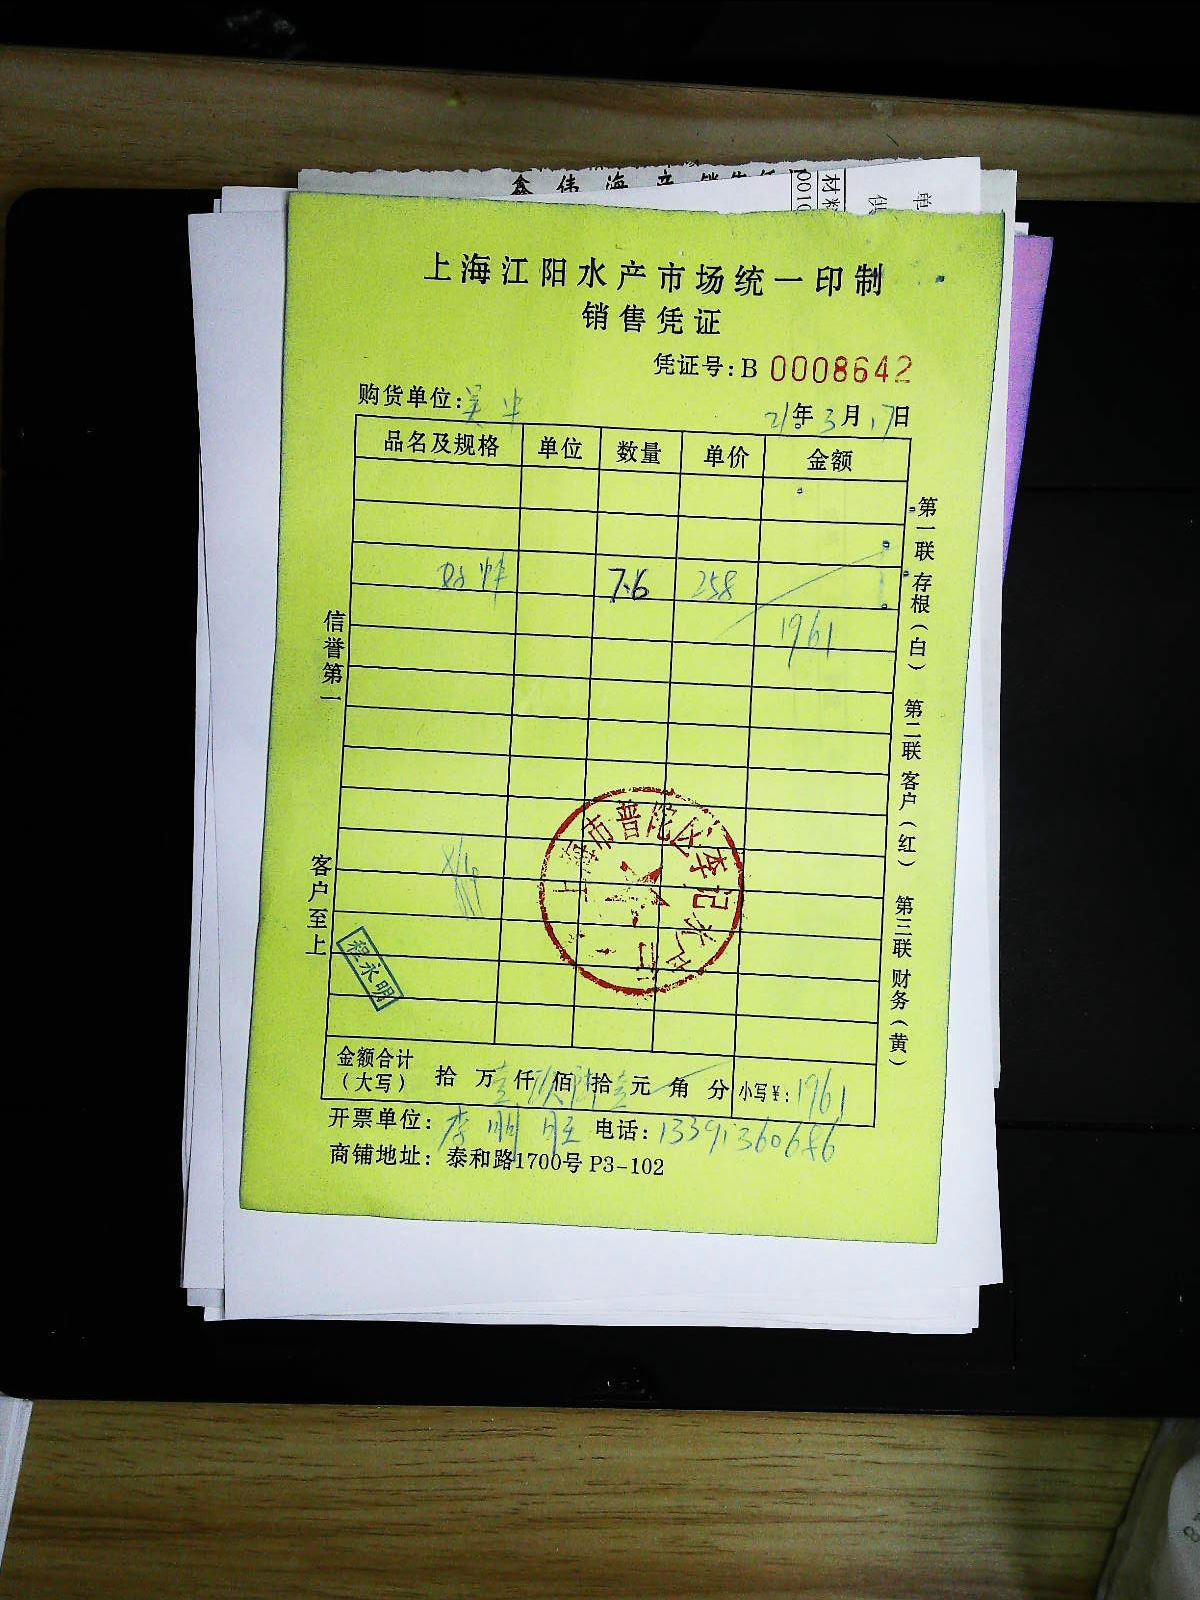 上海江阳水产市场统一印制
销售凭证
凭证号:B 0008642
购货单位:吴
21年3月17日
品名及规格 单位 数量 单价 金额
7.6 258
1961
信誉第一
客户至上
第一联 存根(白) 第二联 客户(红) 第三联 财务(黄)
上海市普陀区李记水产
程永明
金额合计(大写) 拾 万壹仟玖佰陆拾壹元 角 分 小写¥:1961
开票单位:李明胜 电话:13391360686
商铺地址: 泰和路1700号 P3-102
鑫伟海产销售凭
材料
0010
单